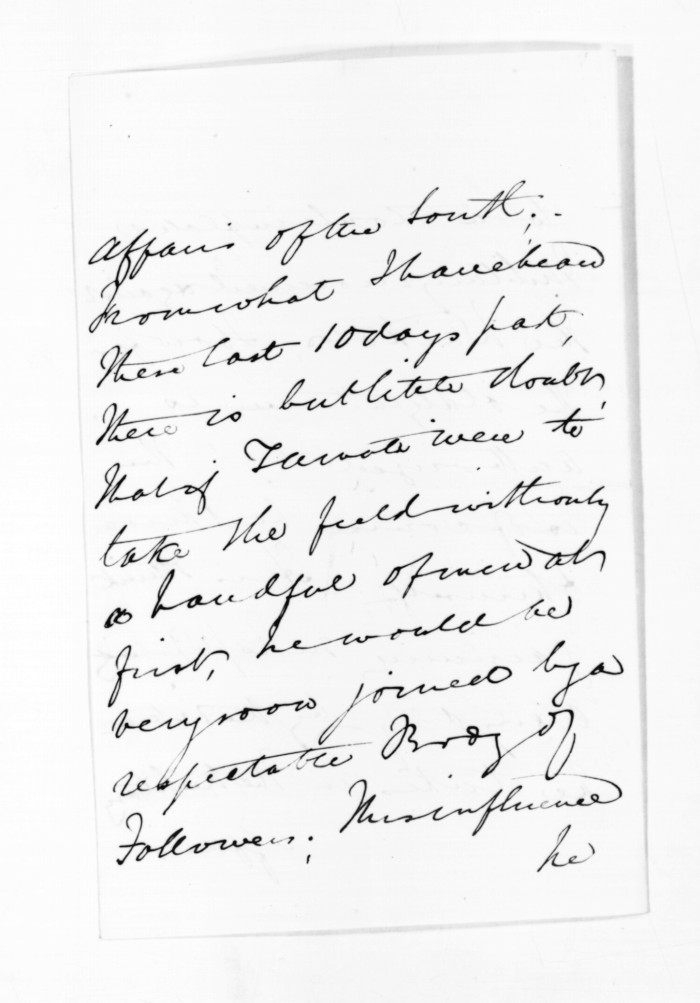 affairs of the South;.
From what I have heard
these last 10 days past,
there is but little doubt,
that if Tamati were to
take the field with only
a handful of men at
first, he would be
very soon joined by a
respectable Body of
Followers; This influence
he